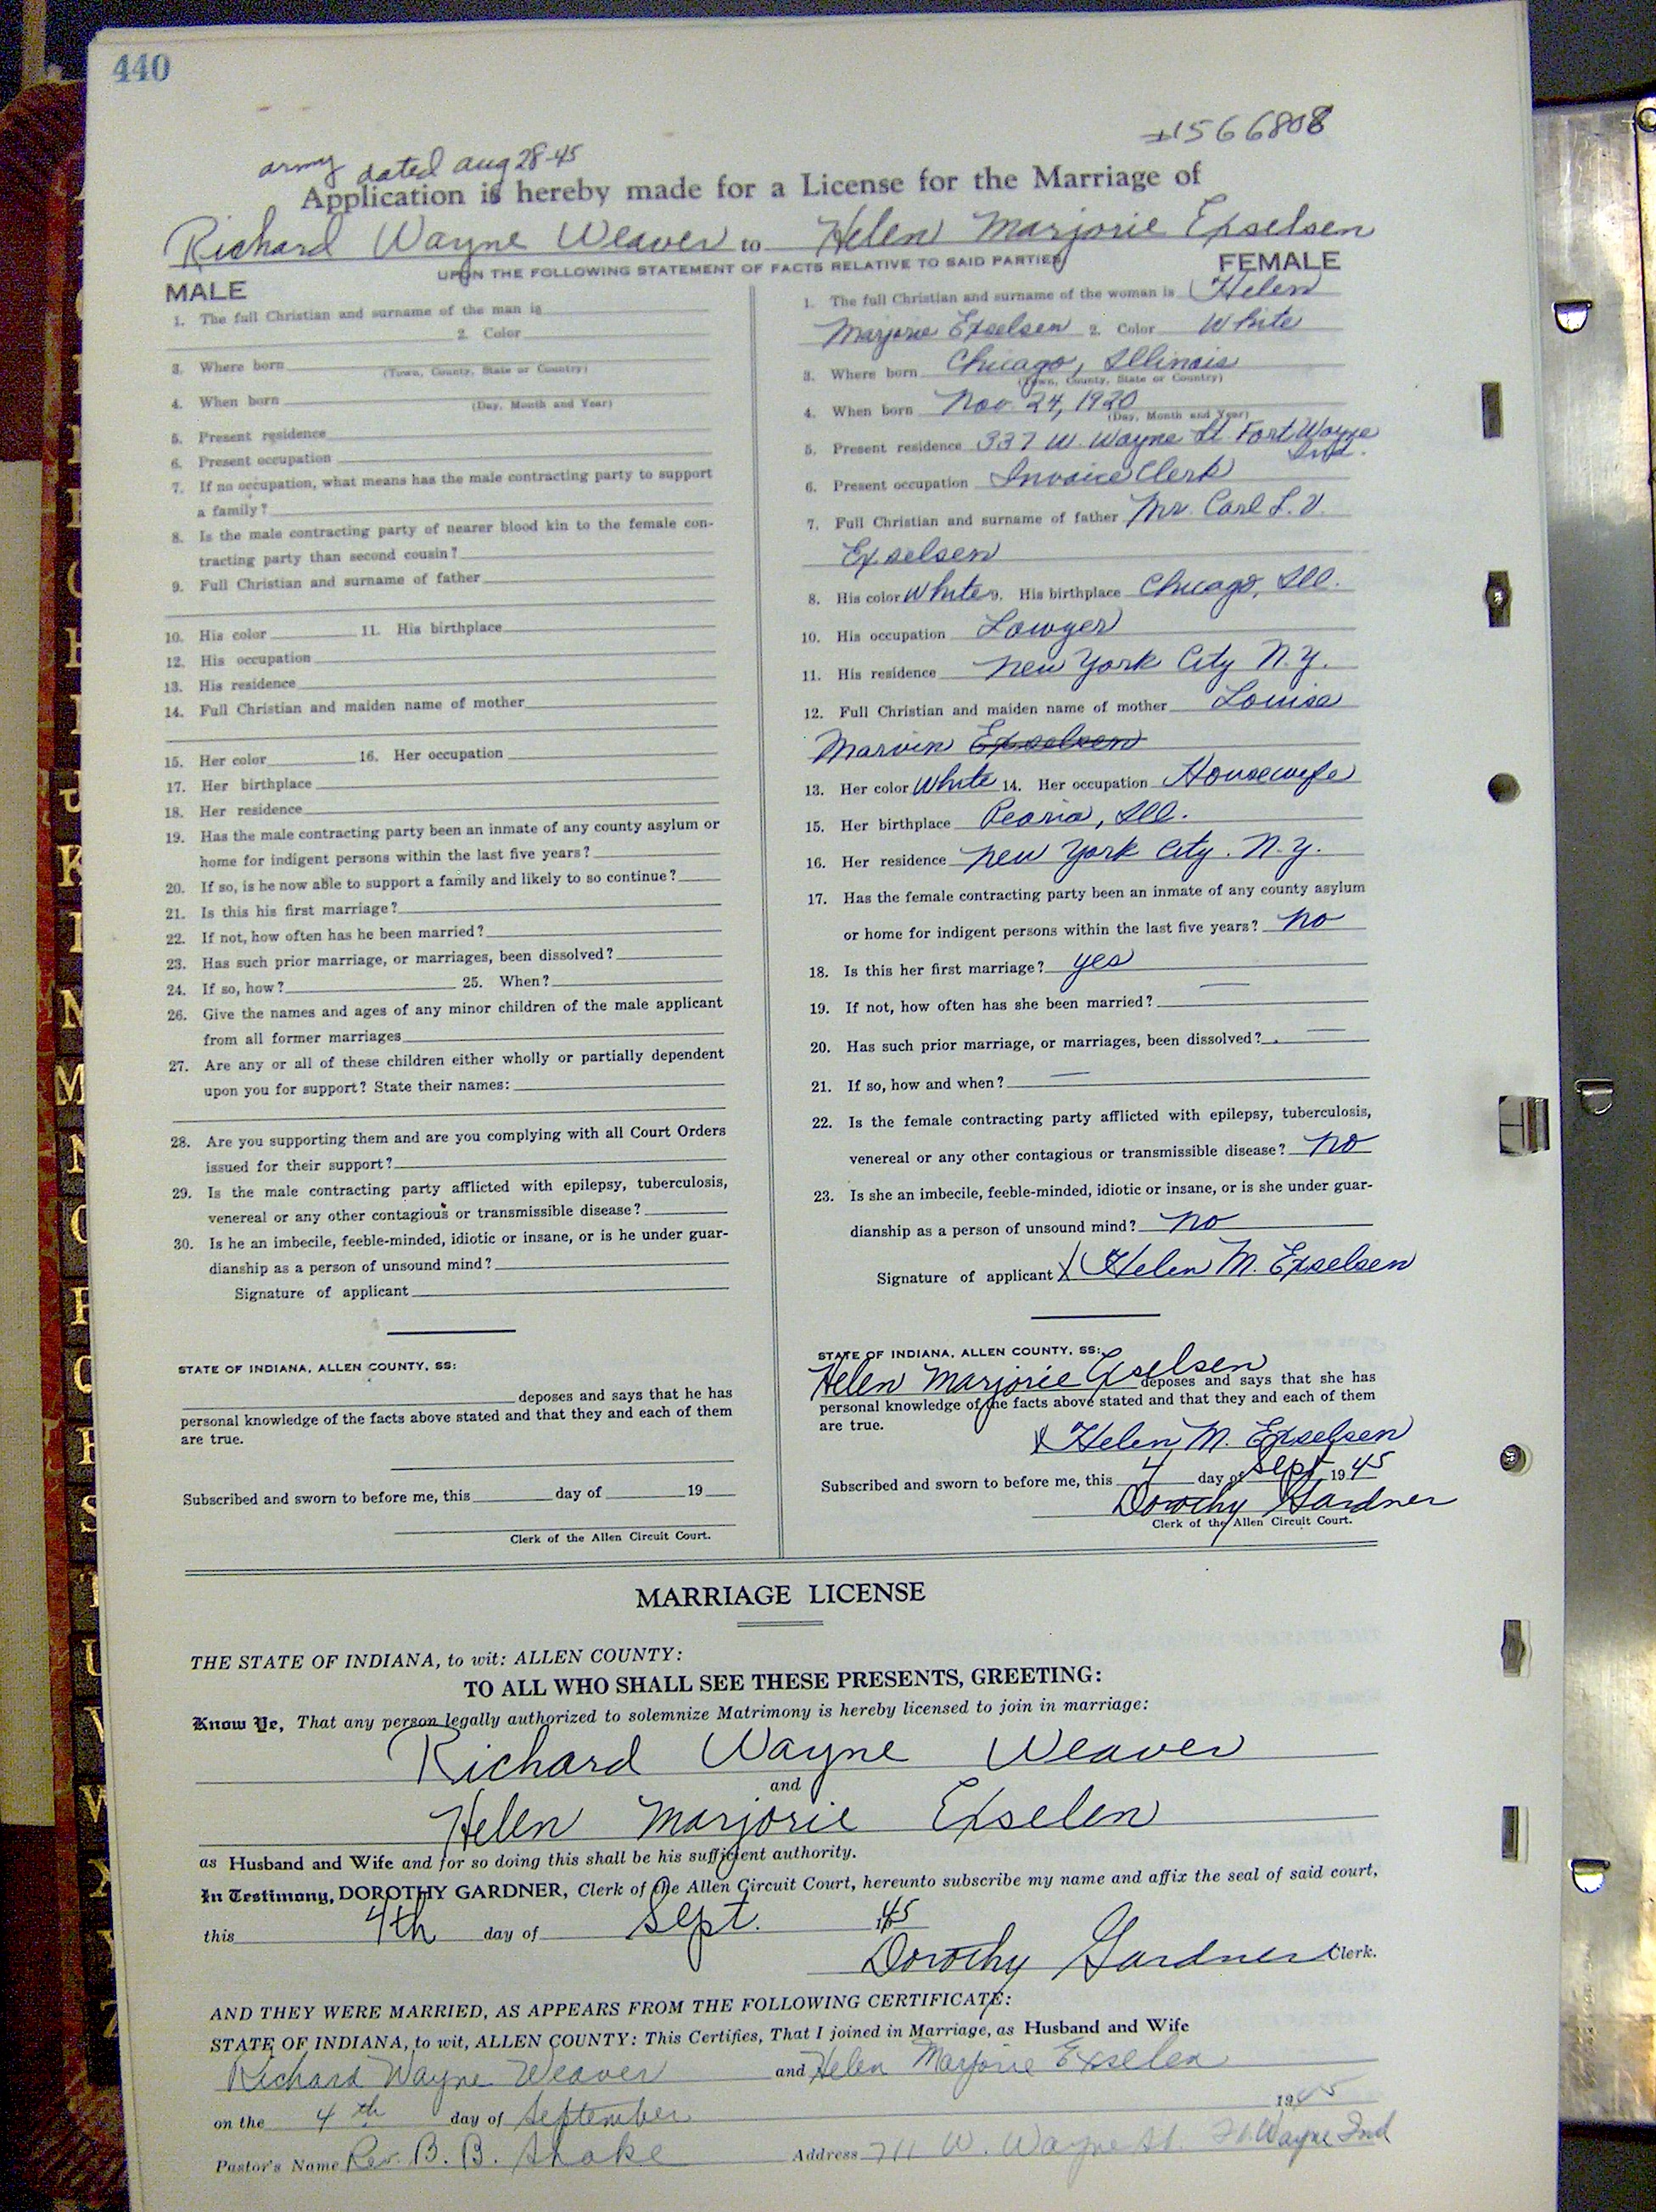 440
±1566808
army dated aug 28-45
Application is hereby made for a License for the Marriage of
Richard Wayne Weaver to Helen Marjorie Exselsen
UPON THE FOLLOWING STATEMENT OF FACTS RELATIVE TO SAID PARTIES
MALE
1. The full Christian and surname of the man is
2. Color
3. Where born
(Town, County, State or Country)
4. When born
(Day, Month and Year)
5. Present residence
6. Present occupation
7. If no occupation, what means has the male contracting party to support
a family?
8. Is the male contracting party of nearer blood kin to the female con-
tracting party than second cousin?
9. Full Christian and surname of father
10. His color 11. His birthplace
12. His occupation
13. His residence
14. Full Christian and maiden name of mother
15. Her color 16. Her occupation
17. Her birthplace
18. Her residence
19. Has the male contracting party been an inmate of any county asylum or
home for indigent persons within the last five years?
20. If so, is he now able to support a family and likely to so continue?
21. Is this his first marriage?
22. If not, how often has he been married?
23. Has such prior marriage, or marriages, been dissolved?
24. If so, how? 25. When?
26. Give the names and ages of any minor children of the male applicant
from all former marriages
27. Are any or all of these children either wholly or partially dependent
upon you for support? State their names:
28. Are you supporting them and are you complying with all Court Orders
issued for their support?
29. Is the male contracting party afflicted with epilepsy, tuberculosis,
venereal or any other contagious or transmissible disease?
30. Is he an imbecile, feeble-minded, idiotic or insane, or is he under guar-
dianship as a person of unsound mind?
Signature of applicant
STATE OF INDIANA, ALLEN COUNTY, SS:
deposes and says that he has
personal knowledge of the facts above stated and that they and each of them
are true.
Subscribed and sworn to before me, this day of 19
Clerk of the Allen Circuit Court.
FEMALE
1. The full Christian and surname of the woman is Helen
Marjorie Exselsen 2. Color White
3. Where born Chicago, Illinois
(Town, County, State or Country)
4. When born Nov. 24, 1920
(Day, Month and Year)
5. Present residence 337 W. Wayne St. Fort Wayne
Ind.
6. Present occupation Invoice Clerk
7. Full Christian and surname of father Mr. Carl L. V.
Exselsen
8. His color White 9. His birthplace Chicago, Ill.
10. His occupation Lawyer
11. His residence New York City N.Y.
12. Full Christian and maiden name of mother Louise
Marvin Exselsen
13. Her color White 14. Her occupation Housewife
15. Her birthplace Peoria, Ill.
16. Her residence New York City. N.Y.
17. Has the female contracting party been an inmate of any county asylum
or home for indigent persons within the last five years? No
18. Is this her first marriage? yes
19. If not, how often has she been married? —
20. Has such prior marriage, or marriages, been dissolved? —
21. If so, how and when? —
22. Is the female contracting party afflicted with epilepsy, tuberculosis,
venereal or any other contagious or transmissible disease? No
23. Is she an imbecile, feeble-minded, idiotic or insane, or is she under guar-
dianship as a person of unsound mind? No
Signature of applicant X Helen M. Exselsen
STATE OF INDIANA, ALLEN COUNTY, SS:
Helen Marjorie Exselsen deposes and says that she has
personal knowledge of the facts above stated and that they and each of them
are true.
X Helen M. Exselsen
Subscribed and sworn to before me, this 4 day of Sept. 1945
Dorothy Gardner
Clerk of the Allen Circuit Court.
MARRIAGE LICENSE
THE STATE OF INDIANA, to wit: ALLEN COUNTY:
TO ALL WHO SHALL SEE THESE PRESENTS, GREETING:
Know Ye, That any person legally authorized to solemnize Matrimony is hereby licensed to join in marriage:
Richard Wayne Weaver
and
Helen Marjorie Exselen
as Husband and Wife and for so doing this shall be his sufficient authority.
In Testimony, DOROTHY GARDNER, Clerk of the Allen Circuit Court, hereunto subscribe my name and affix the seal of said court,
this 4th day of Sept. 45
Dorothy Gardner Clerk.
AND THEY WERE MARRIED, AS APPEARS FROM THE FOLLOWING CERTIFICATE:
STATE OF INDIANA, to wit, ALLEN COUNTY: This Certifies, That I joined in Marriage, as Husband and Wife
Richard Wayne Weaver and Helen Marjorie Exselen
on the 4th day of September 1945
Pastor's Name Rev. B. B. Shake Address 711 W. Wayne St. Ft. Wayne Ind